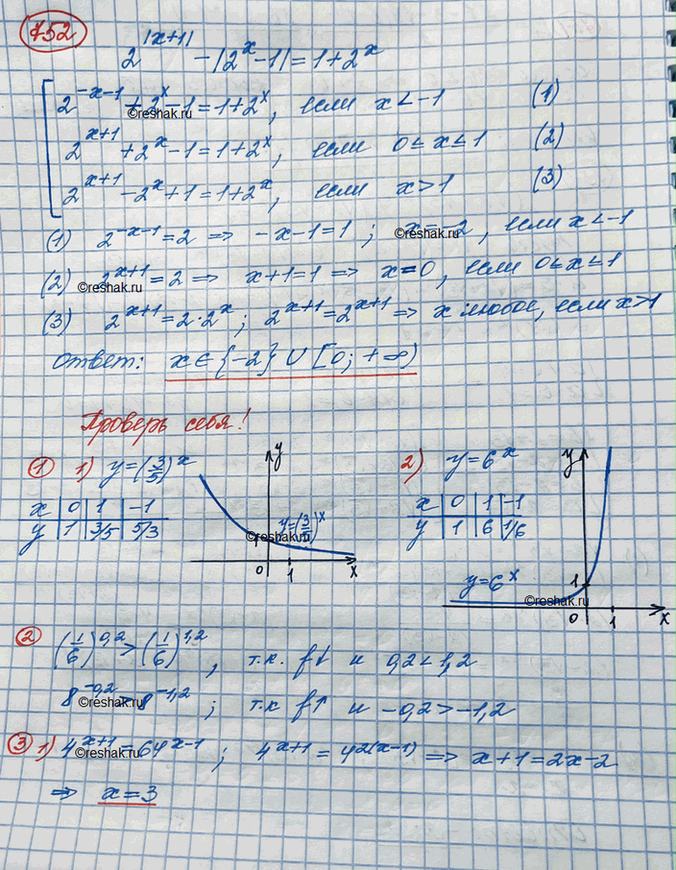 752
2^|x+1| - |2^x - 1| = 1 + 2^x
2^-x-1 + 2^x - 1 = 1 + 2^x, если x < -1 (1)
2^x+1 + 2^x - 1 = 1 + 2^x, если 0 ≤ x ≤ 1 (2)
2^x+1 - 2^x + 1 = 1 + 2^x, если x > 1 (3)
(1) 2^-x-1 = 2 => -x-1 = 1 ; x = -2, если x < -1
(2) 2^x+1 = 2 => x+1 = 1 => x = 0, если 0 ≤ x ≤ 1
(3) 2^x+1 = 2·2^x ; 2^x+1 = 2^x+1 => x любое, если x > 1
Ответ: x ∈ {-2} ∪ [0; +∞)
Проверь себя!
1 1) y = (3/5)^x
x | 0 | 1 | -1
y | 1 | 3/5 | 5/3
y
y = (3/5)^x
1
0 1 x
2) y = 6^x
x | 0 | 1 | -1
y | 1 | 6 | 1/6
y
y = 6^x
1
0 1 x
2 (1/6)^0,2 > (1/6)^1,2, т.к. f↓ и 0,2 < 1,2
8^-0,2 > 8^-1,2 ; т.к f↑ и -0,2 > -1,2
3 1) 4^x+1 = 64^x-1 ; 4^x+1 = 4^2(x-1) => x+1 = 2x-2
=> x = 3
©reshak.ru
©reshak.ru
©reshak.ru
©reshak.ru
©reshak.ru
©reshak.ru
©reshak.ru